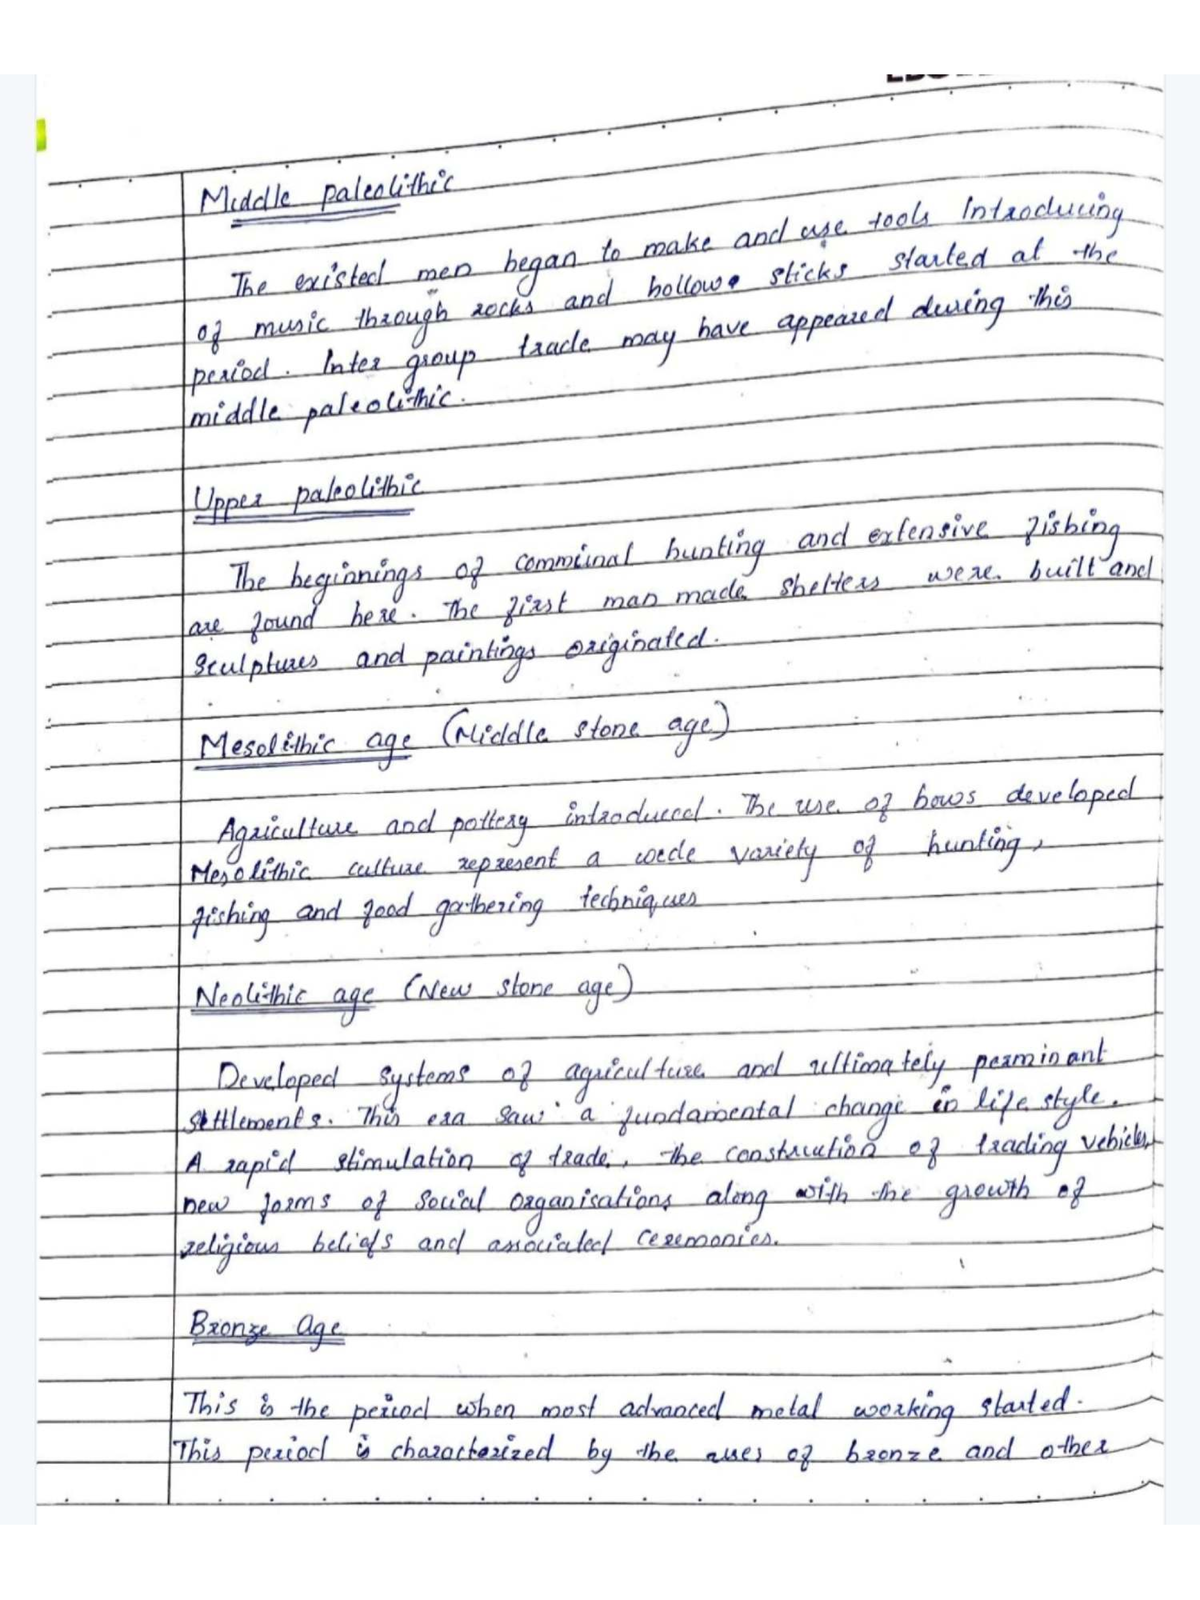 Middle paleolithic
The existed men began to make and use tools Introducing
of music through rocks and hollow sticks started at the
period. Inter group trade may have appeared during this
middle paleolithic.
Upper paleolithic
The beginnings of communal hunting and extensive fishing
are found here. The first man made shelters were built and
Sculptures and paintings originated.
Mesolithic age (Middle stone age)
Agriculture and pottery introduced. The use of bows developed
Mesolithic culture represent a wide variety of hunting,
fishing and food gathering techniques
Neolithic age (New stone age)
Developed systems of agriculture and ultimately perminant
settlements. This era saw a fundamental change in life style.
A rapid stimulation of trade, the construction of trading vehicles,
new forms of social organisations along with the growth of
religious beliefs and associated ceremonies.
Bronze Age
This is the period when most advanced metal working started.
This period is charactorized by the uses of bronze and other